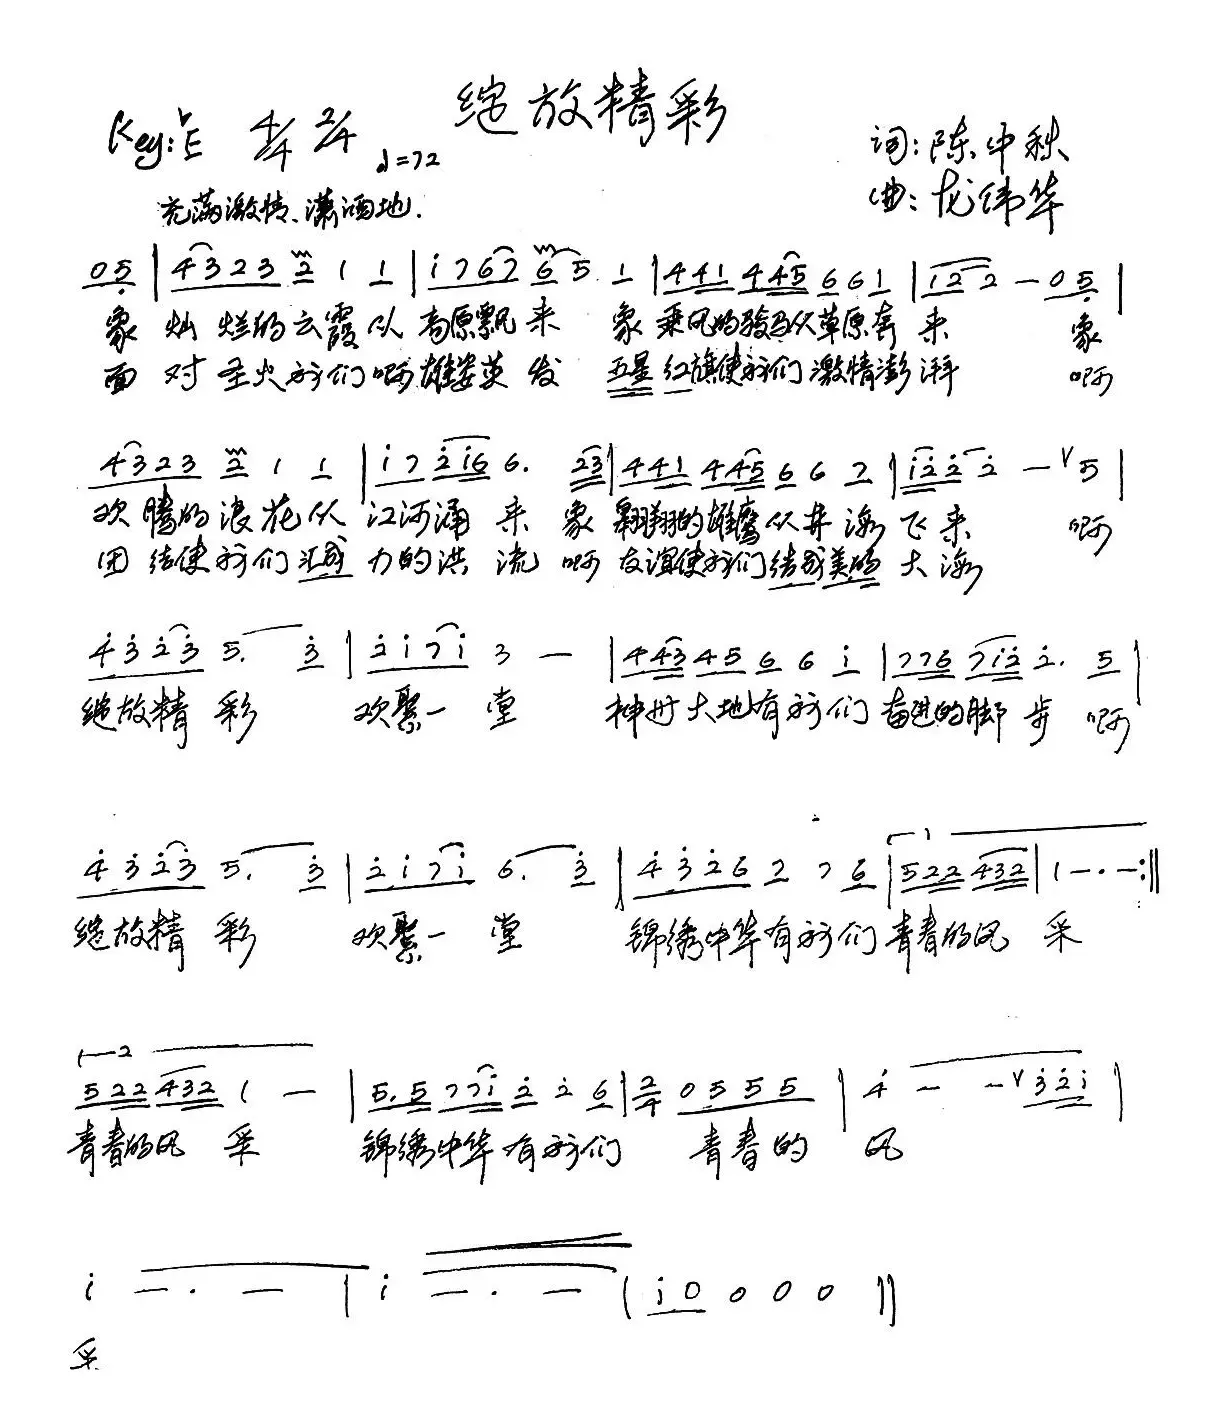 绽放精彩
Key: ♭E 4/4 2/4 ♩=72
词: 陈中秋
曲: 龙纬华
充满激情、潇洒地.
0 5 | 4 3 2 3 2 1 1 | i 7 6 7 6 5. 1 | 4 4 1 4 4 5 6 6 1 | i 2 2 — 0 5 |
象 灿 烂的云霞从 高原飘 来 象 乘风的骏马从草原奔 来 象
面 对 圣火我们啊雄姿英 发 五星红旗使我们激情澎湃 啊
4 3 2 3 2 1 1 | i 7 2 i 6 6. 2 3 | 4 4 1 4 4 5 6 6 7 | i 2 2 2 — ∨ 5 |
欢 腾的浪花从 江河涌 来 象 翱翔的雄鹰从林海飞来 啊
团 结使我们汇成力的洪 流 啊 友谊使我们结成美的大海
4 3 2 3 5. 3 | 2 i 7 i 3 — | 4 4 3 4 5 6 6 i | 7 7 6 7 i 2 2. 5 |
绽放精 彩 欢聚一 堂 神州大地有我们 奋进的脚 步 啊
4 3 2 3 5. 3 | 2 i 7 i 6. 3 | 4 3 2 6 2 7 6 | 1 5 2 2 4 3 2 | 1 — · — :||
绽放精 彩 欢聚一 堂 锦绣中华有我们 青春的风 采
2 5 2 2 4 3 2 1 — | 5. 5 7 7 i 2 2 6 | 2/4 0 5 5 5 | 4 — — ∨ 3 2 i |
青春的风 采 锦绣中华 有我们 青春的 风
i — · — | i — · — | i 0 0 0 0 ||
采